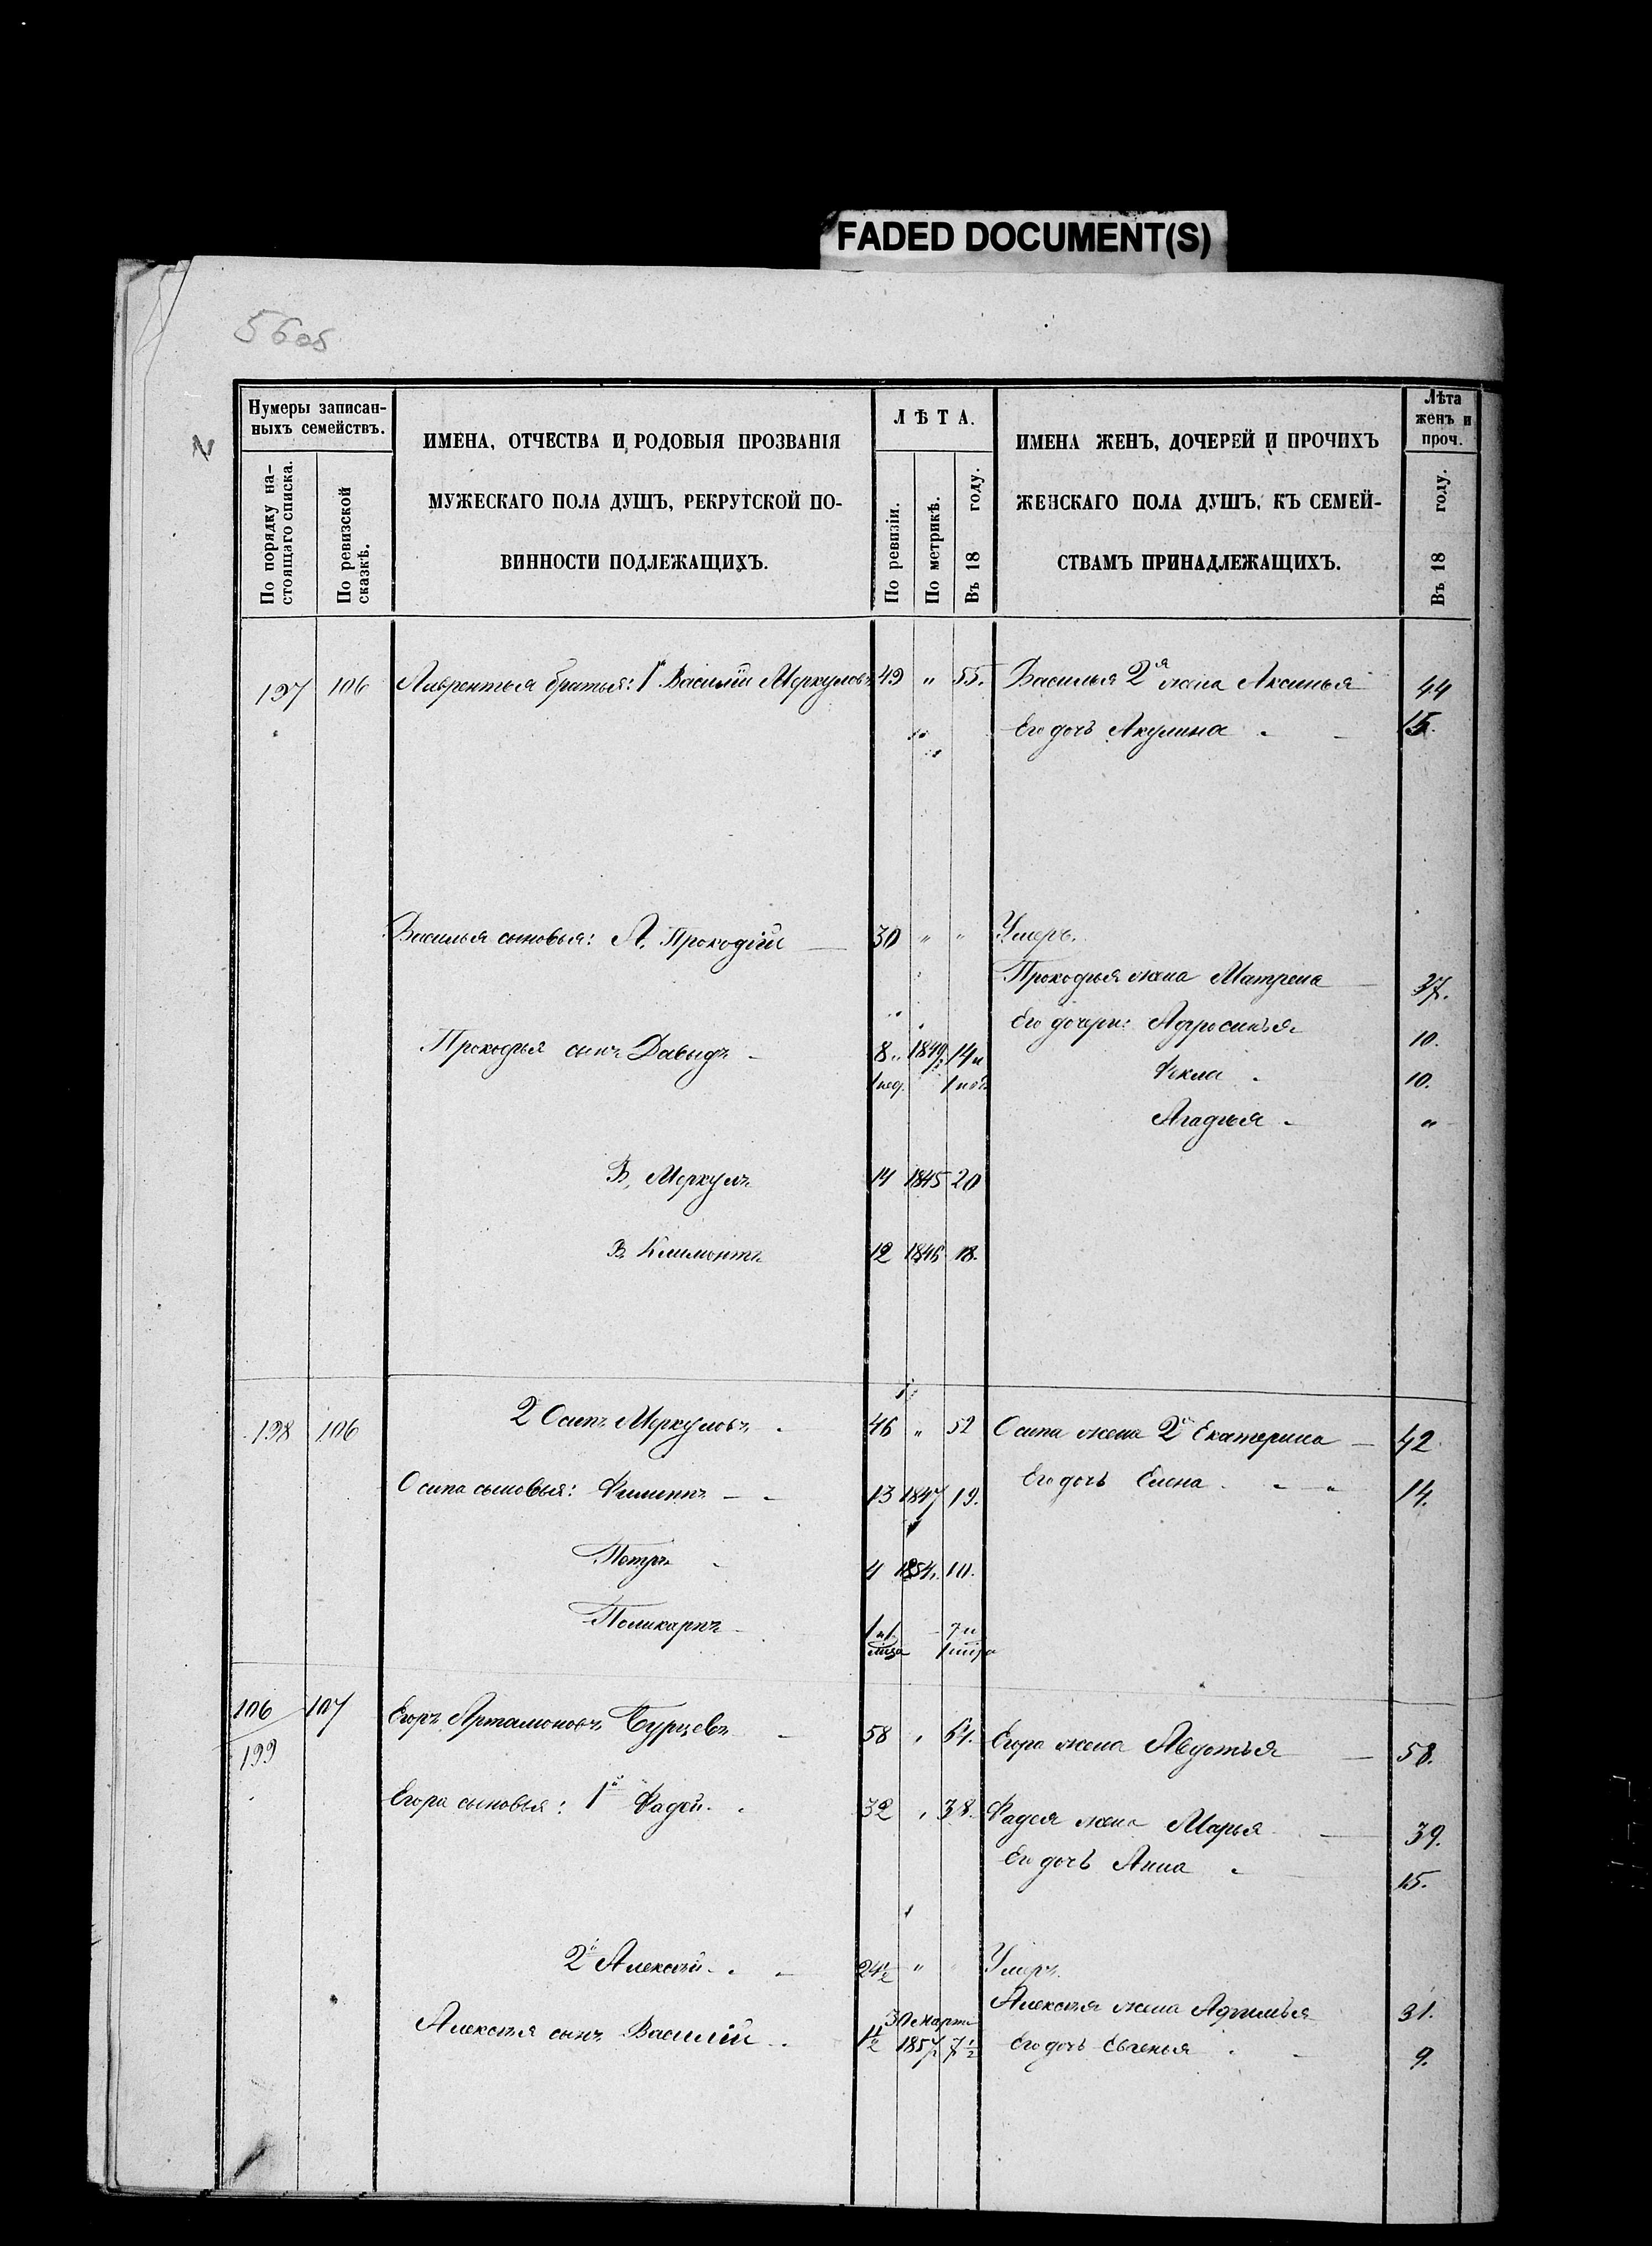 FADED DOCUMENT(S)
56 об
Нумеры записан-
ныхъ семействъ.
По порядку на-
стоящаго списка.
По ревизской
сказкѣ.
ИМЕНА, ОТЧЕСТВА И РОДОВЫЯ ПРОЗВАНІЯ
МУЖЕСКАГО ПОЛА ДУШЪ, РЕКРУТСКОЙ ПО-
ВИННОСТИ ПОДЛЕЖАЩИХЪ.
ЛѢТА.
По ревизіи.
По метрикѣ.
Въ 18 году.
ИМЕНА ЖЕНЪ, ДОЧЕРЕЙ И ПРОЧИХЪ
ЖЕНСКАГО ПОЛА ДУШЪ, КЪ СЕМЕЙ-
СТВАМЪ ПРИНАДЛЕЖАЩИХЪ.
Лѣта
женъ и
проч.
Въ 18 году.
197 106 Лаврентья братья: 1й Василій Меркуловъ 49 " 55. Василья 2я жена Аксинья 44
Его дочь Акулина 15.
Василья сыновья: А, Прокофій 30 " " Умеръ.
Прокофья жена Матрена 37.
Его дочери: Афросинья 10.
Прокофья сынъ Давыдъ 8 " 1849. 14 и
1 нед. 1 нед. Ѳекла 10.
Агафья "
Б, Меркулъ 14 1845 20
В, Климонтъ 12 1846 18.
198 106 2 Осипъ Меркуловъ 46 " 52 Осипа жена 2я Екатерина 42
Осипа сыновья: Филиппъ 13 1847 19. Его дочь Елена 14.
Петръ 4 1854. 10.
Поликарпъ 1 и 1 7 и
мца 1 мца
106 107 Егоръ Артамоновъ Бурцевъ 58 " 64. Егора жена Авдотья 58.
199
Егора сыновья: 1й Фадей 32 " 38. Фадея жена Марья 39.
Его дочь Анна 15.
2й Алексѣй 24½ " " Умеръ.
Алексѣя жена Афимья 31.
Алексѣя сынъ Василій 1½ 30 марта 1857. 7½ Его дочь Евгенья 9.